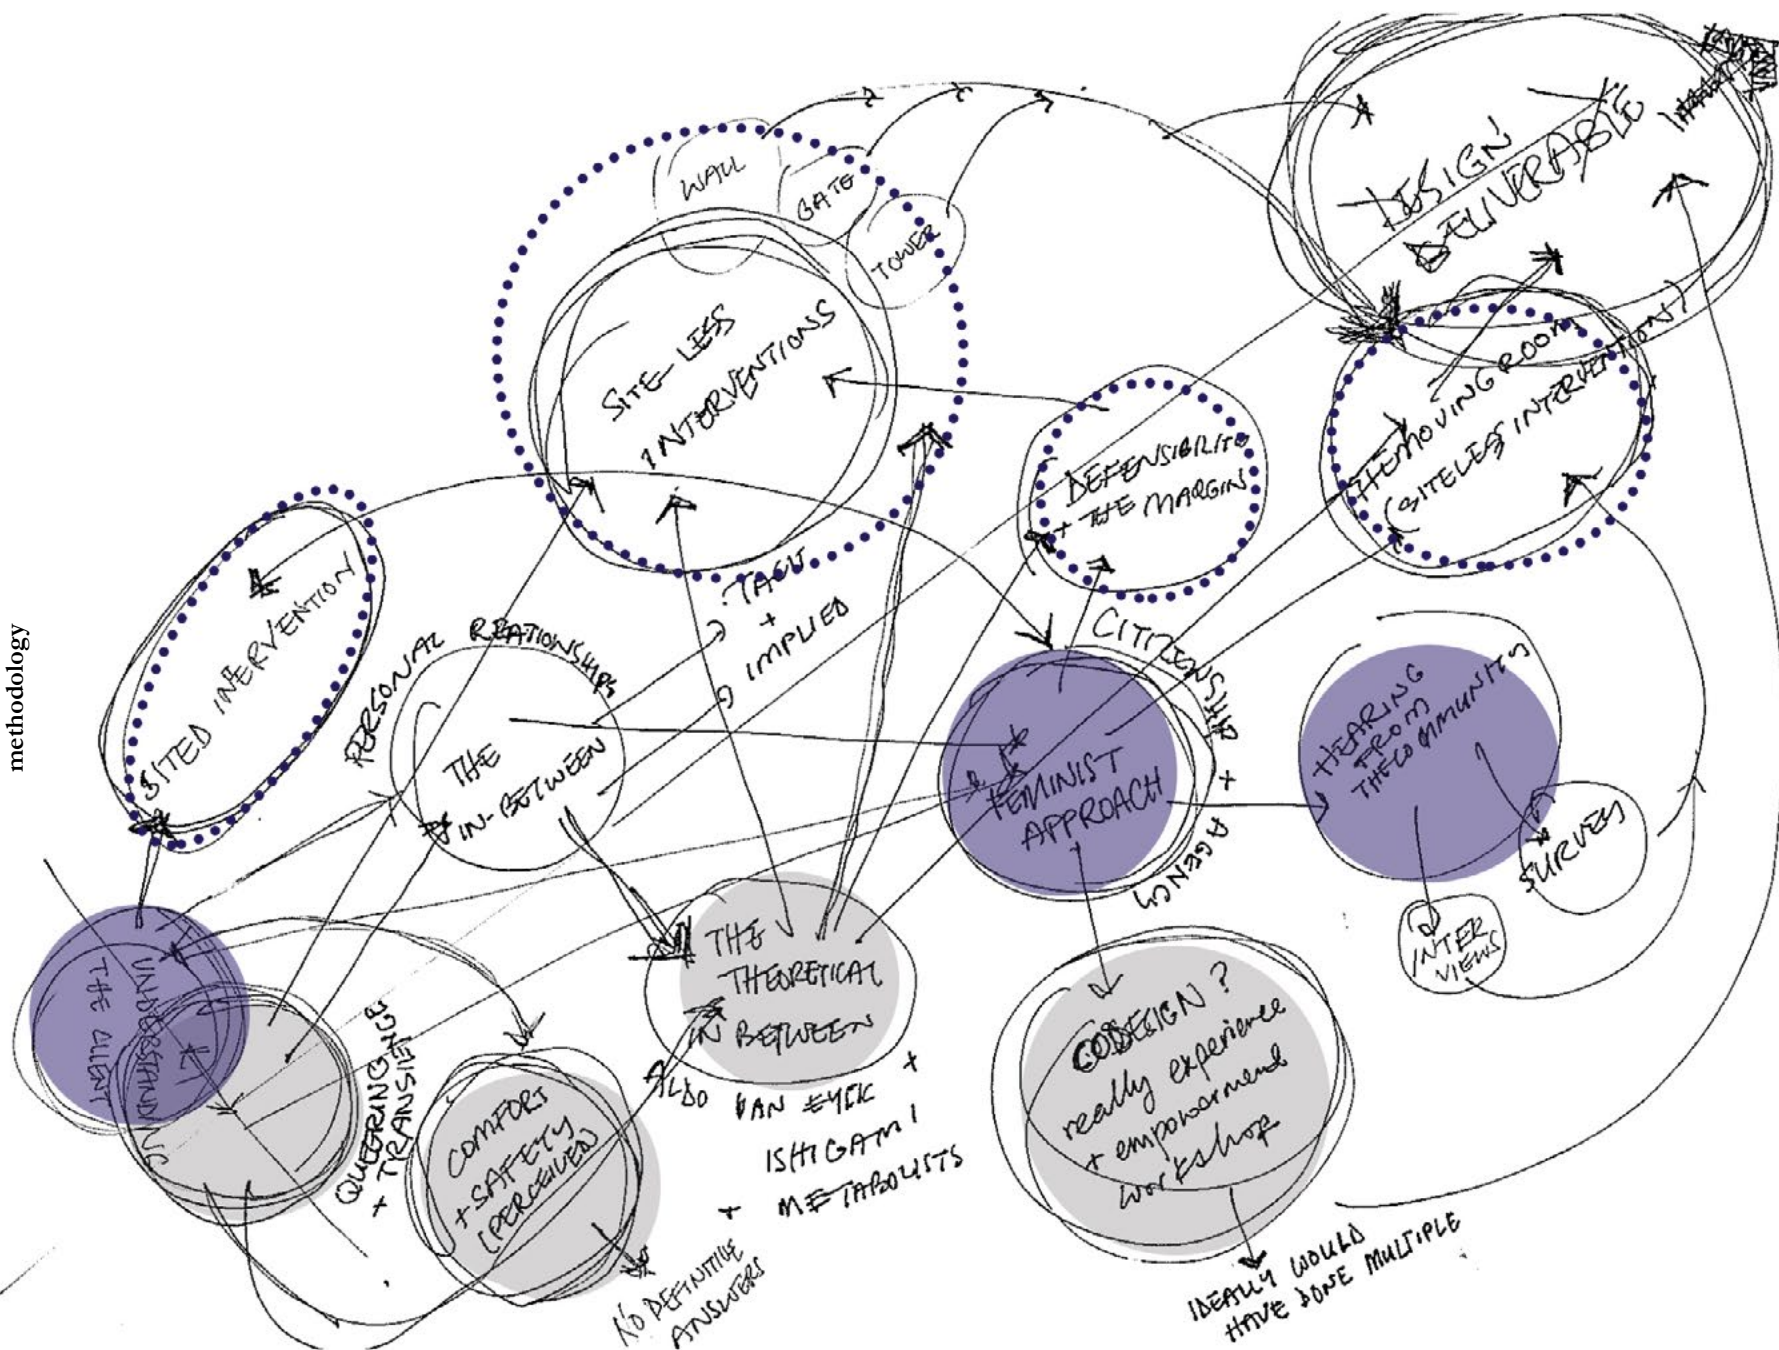 methodology
WALL
GATE
TOWER
DESIGN
DELIVERABLE
SITE-LESS
INTERVENTIONS
THE MOVING ROOM
(SITELESS INTERVENTION)
DEFENSIBILITY
+ THE MARGIN
SITED INTERVENTION
PERSONAL REATIONSHIPS
TACIT
+
IMPLIED
THE
IN-BETWEEN
CITIZENSHIP + AGENCY
FEMINIST
APPROACH
HEARING
FROM
THE COMMUNITY
SURVEY
INTER
VIEWS
UNDERSTANDING
THE CLIENT
QUEERING
+ TRANSIENCE
COMFORT
+ SAFETY
(PERCEIVED)
NO DEFINITIVE
ANSWERS
THE
THEORETICAL
IN BETWEEN
ALDO VAN EYCK +
ISHIGAMI
+ METABOLISTS
CODESIGN?
really experience
+ empowerment
workshop
IDEALLY WOULD
HAVE DONE MULTIPLE